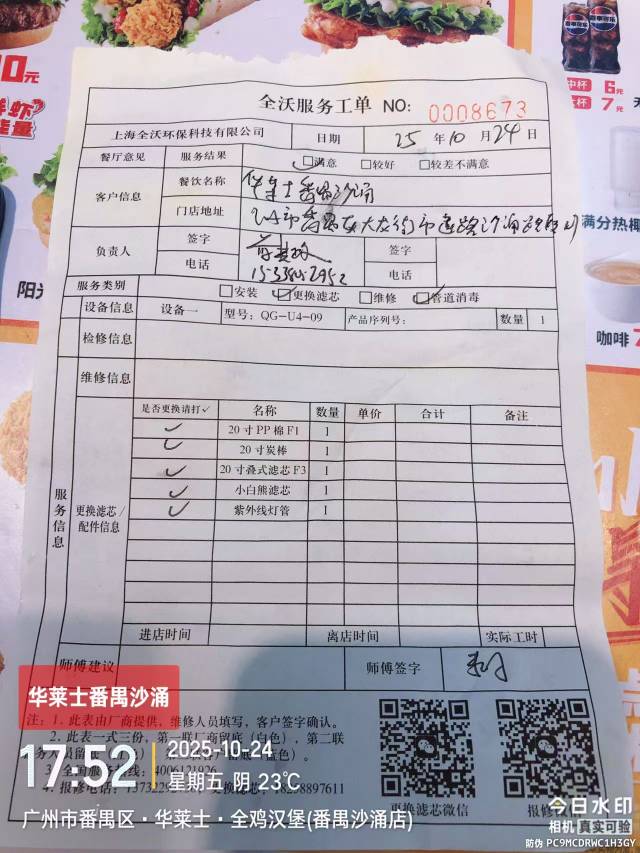 0元
中杯 6元
7元
全沃服务工单 NO: 0008673
上海全沃环保科技有限公司 日期 25 年 10 月 24 日
餐厅意见 服务结果 满意 较好 较差不满意
客户信息 餐饮名称 华莱士番禺沙涌
门店地址
负责人 签字 签字
电话 电话
服务类别 安装 更换滤芯 维修 管道消毒
设备信息 设备一 型号: QG-U4-09 产品序列号: 数量 1
检修信息
维修信息
服务信息
更换滤芯/
配件信息
是否更换请打✓ 名称 数量 单价 合计 备注
✓ 20寸PP棉F1 1
✓ 20寸炭棒 1
✓ 20寸叠式滤芯F3 1
✓ 小白熊滤芯 1
✓ 紫外线灯管 1
进店时间 离店时间 实际工时
师傅建议 师傅签字
注: 1. 此表由厂商提供, 维修人员填写, 客户签字确认。
2. 此表一式三份, 第一联厂商留底（白色）, 第二联
更换滤芯微信
阳光
满分热椰
咖啡 7
华莱士番禺沙涌
17:52
2025-10-24
星期五 阴 23℃
广州市番禺区·华莱士·全鸡汉堡(番禺沙涌店)
今日水印
相机 真实可验
防伪 PC9MCDRWC1H3GY